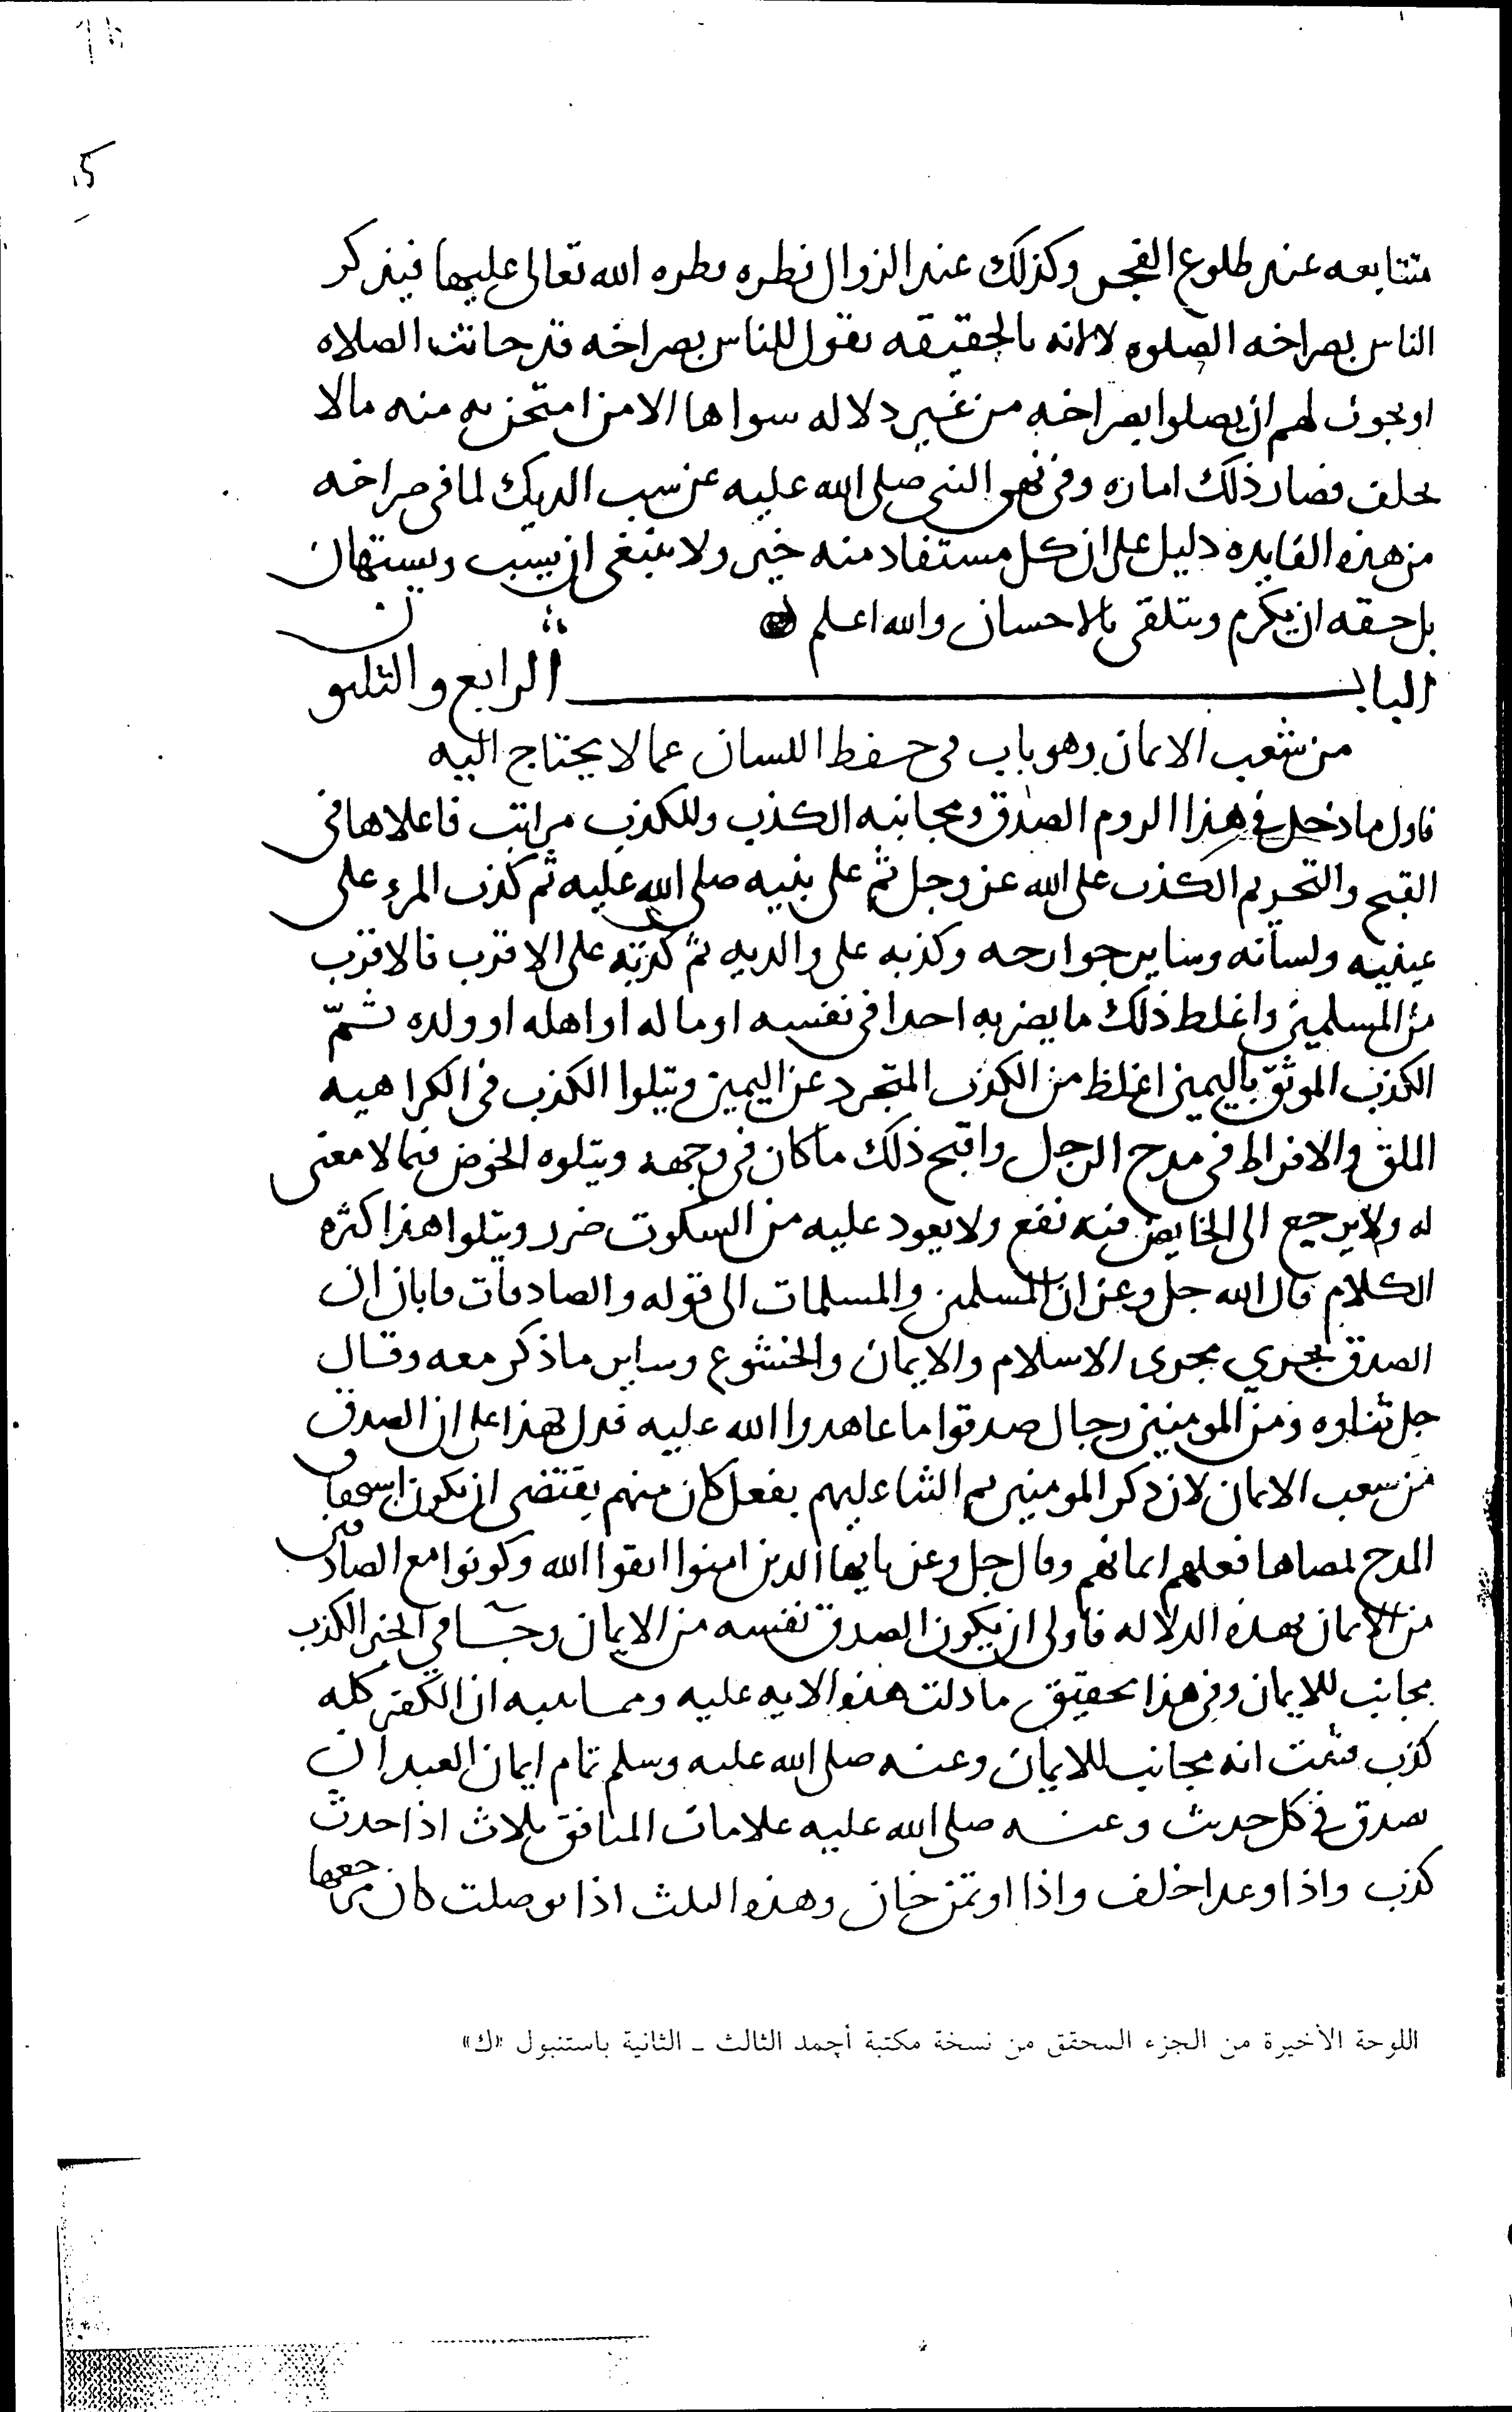 متتابعه عند طلوع الفجر وكذلك عند الزوال فطره فطره الله تعالى عليها فيذكر
الناس بصراخه الصلوه لا لانه بالحقيقه يقول للناس بصراخه قد حانت الصلاه
او يجوز لهم ان يصلوا بصراخه من غير دلاله سواها الا من امتحن به منه مالا
يخلف فصار ذلك اماره وفى نهى النبى صلى الله عليه عن سب الديك لما فى صراخه
من هذه الفايده دليل على ان كل مستفاد منه خير ولا ينبغى ان يسب ويستهان
بل حقه ان يكرم ويتلقى بالاحسان والله اعلم
الباب الرابع والثلثون
من شعب الايمان وهو باب فى حفظ اللسان عما لا يحتاج اليه
فاول ما دخل فى هذا لزوم الصدق ومجانبه الكذب وللكذب مراتب فاعلاها فى
القبح والتحريم الكذب على الله عز وجل ثم على نبيه صلى الله عليه ثم كذب المرء على
عينيه ولسانه وساير جوارحه وكذبه على والديه ثم كذبه على الاقرب فالاقرب
من المسلمين واغلظ ذلك ما يضر به احدا فى نفسه او ماله او اهله او ولده ثمّ
الكذب الموثق باليمين اغلظ من الكذب المتجرد عن اليمين ويتلوا الكذب فى الكراهيه
الملق والافراط فى مدح الرجل واقبح ذلك ما كان فى وجهه ويتلوه الخوض فيما لا معنى
له ولا يرجع الى الخايض فيه نفع ولا يعود عليه من السكوت ضرر ويتلوا هذا كثره
الكلام قال الله جل وعز ان المسلمين والمسلمات الى قوله والصادقات فابان ان
الصدق يجري مجرى الاسلام والايمان والخشوع وساير ما ذكر معه وقال
جل ثناوه من المومنين رجال صدقوا ما عاهدوا الله عليه فدل بهذا على ان الصدق
من شعب الايمان لان ذكر المومنين ثم الثنا عليهم بفعل كان منهم يقتضى ان يكون استحقاق
المدح لهم فعلهم ايمانهم وقال جل وعز يا ايها الذين امنوا اتقوا الله وكونوا مع الصادقين
من الايمان بهذه الدلاله فاولى ان يكون الصدق نفسه من الايمان وجا فى الخبر الكذب
مجانب للايمان وفى هذا تحقيق ما دلت هذه الايه عليه ان الكفر كله
كذب فثبت انه مجانب للايمان وعنه صلى الله عليه وسلم تمام ايمان العبد ان
يصدق فى كل حديث وعنه صلى الله عليه علامات المنافق ثلاث اذا حدث
كذب واذا وعد اخلف واذا اوتمن خان وهذه الثلث اذا توصلت كان مرجعها
اللوحة الأخيرة من الجزء المحقق من نسخة مكتبة أحمد الثالث ـ الثانية باستنبول «ك»